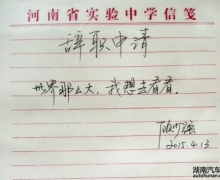 河南省实验中学信笺
辞职申请
世界那么大,我想去看看.
2015.4.13
湖南汽车